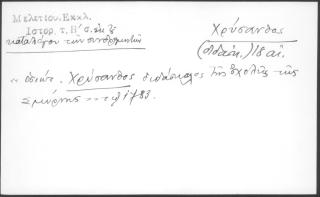 Μελετίου. Εκκλ.
Ιστορ. τ. Β' σ. εκ ξ
καταλόγου των συνδρομητών
Χρύσανθος
(διδάσκ.) 18 αι.
Χρύσανθος διδάσκαλος της σχολής της
Σμύρνης 1783.